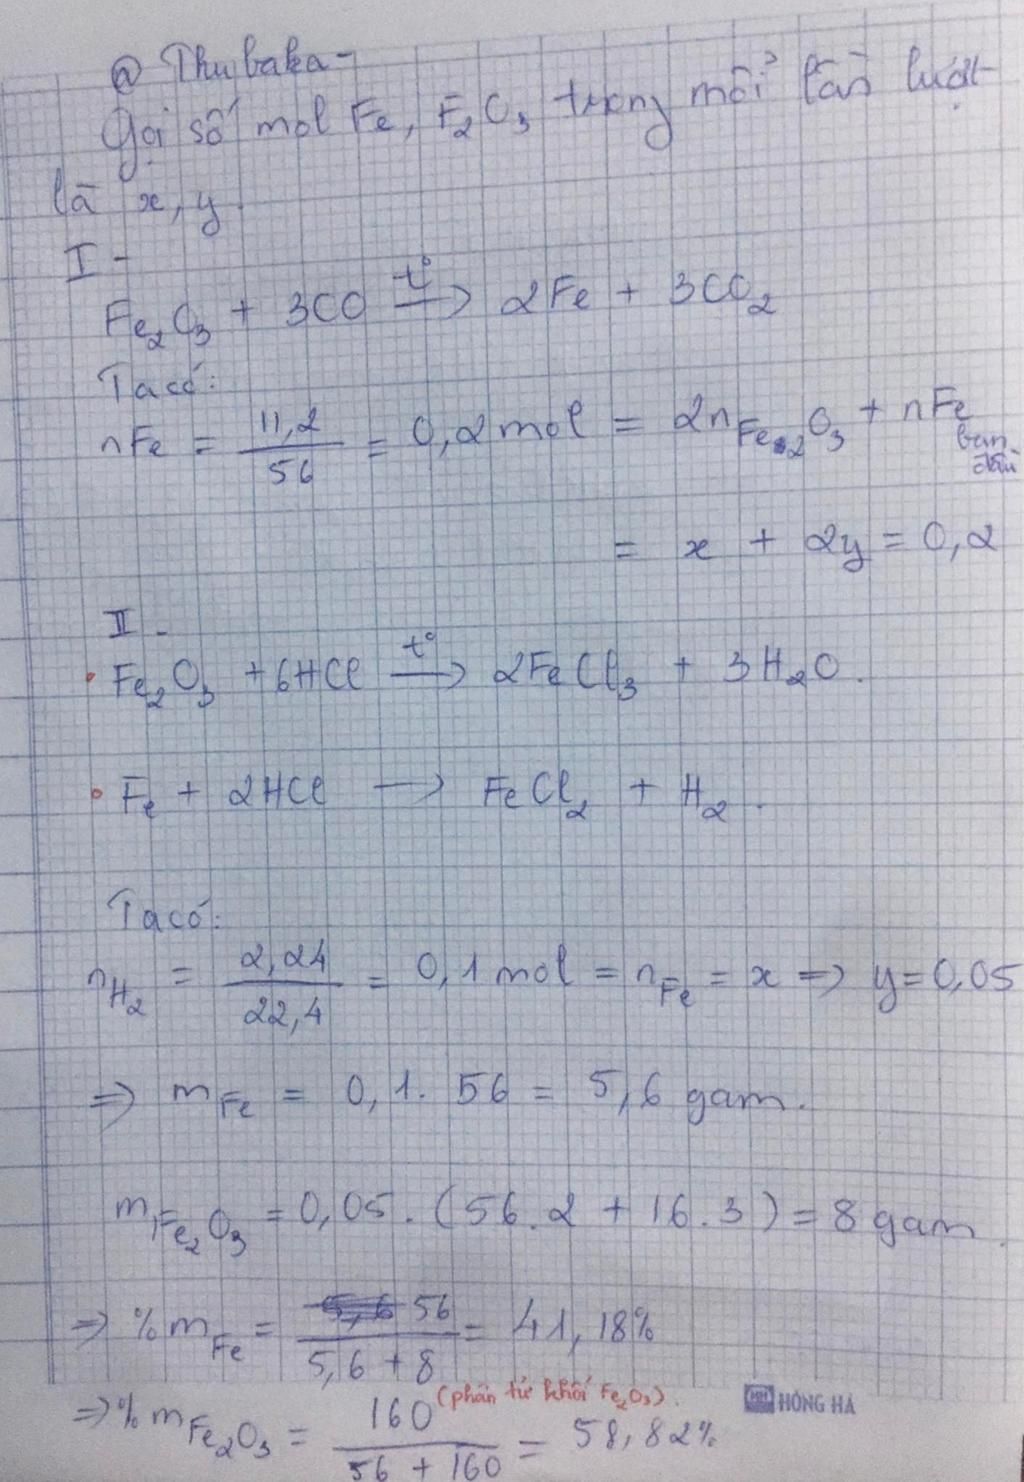 @ Thubaka -
Gọi số mol Fe, F2O3 trong mỗi lần lượt
là x, y
I -
Fe2O3 + 3CO t° → 2Fe + 3CO2
Ta có:
nFe = 11,2 / 56 = 0,2 mol = 2nFe2O3 + nFe ban đầu
= x + 2y = 0,2
II -
• Fe2O3 + 6HCl t° → 2FeCl3 + 3H2O.
• Fe + 2HCl → FeCl2 + H2.
Ta có:
nH2 = 2,24 / 22,4 = 0,1 mol = nFe = x => y = 0,05
=> mFe = 0,1. 56 = 5,6 gam.
mFe2O3 = 0,05. (56.2 + 16.3) = 8 gam.
=> %mFe = 56 / 5,6 + 8 = 41,18%
=> %mFe2O3 = 160 (phân tử khối Fe2O3). / 56 + 160 = 58,82%
HH HỒNG HÀ